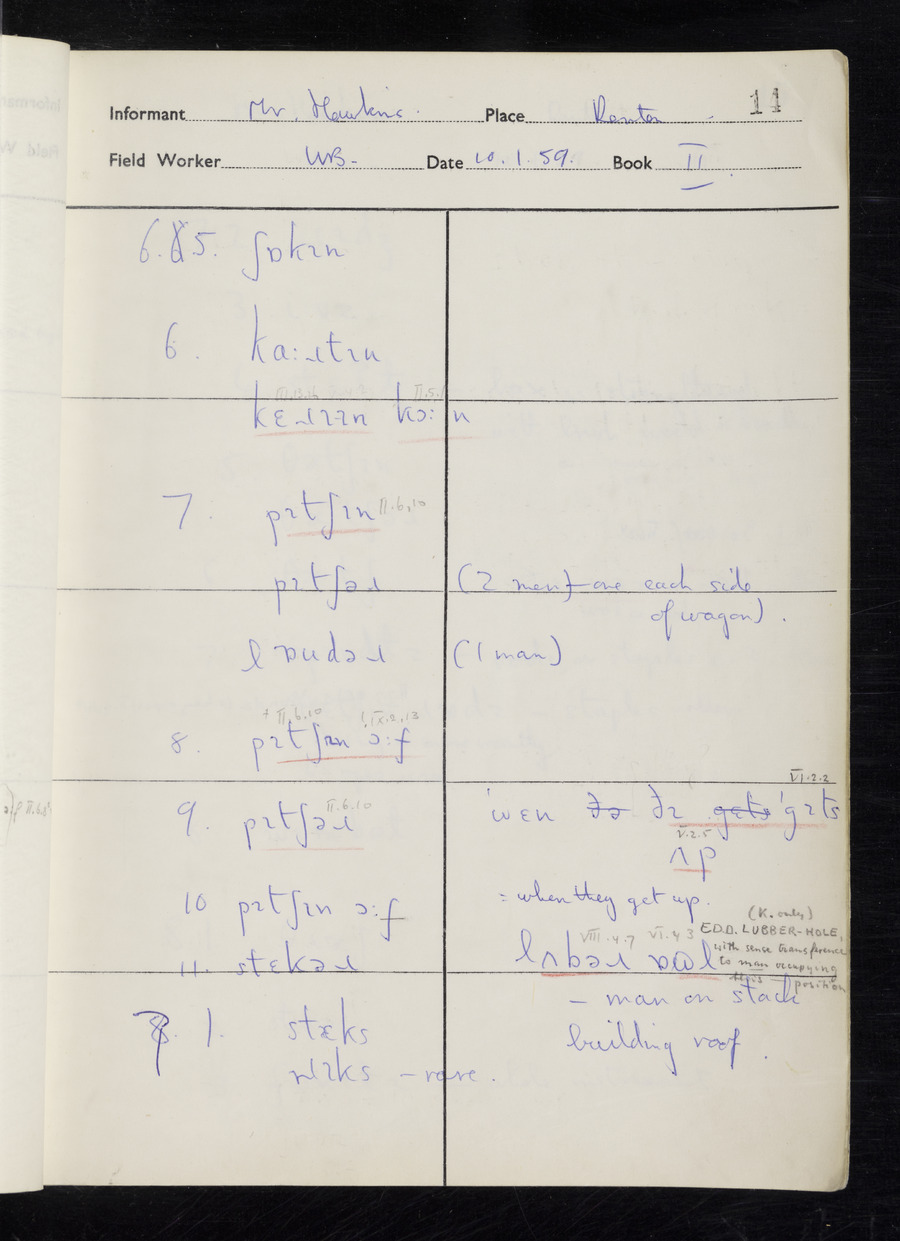 11
Informant Mr. Hawkins. Place
Field Worker WB. Date 10.1.59. Book II
6.5. ʃɒkɪn
6. kaːɹtɪn
III.5.1
kɛɹɪɪn kɔːn
7. pɪtʃɪn II.6,10
pɪtʃəɹ (2 men) one each side
of wagon).
lɒudəɹ (1 man)
+ II.6.10 IX.2.13
8. pɪtʃɪn ɔːf
VI.2.2
9. pɪtʃəɹ II.6.10 ˈwɛn ðə ðɪ gets ˈgɪts
V.2.5
ʌp
= when they get up.
10 pɪtʃɪn ɔːf
(K. only)
VIII.4.7 VI.4.3 E.D.D. LUBBER-HOLE,
11. stɛkəɹ lʌbəɹ with sense transference
to man occupying
this position
– man on stack
7. 1. stæks building roof.
ɹɪks – rare.